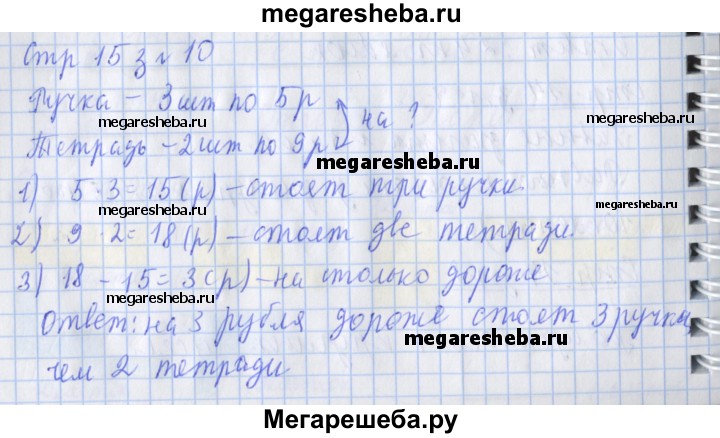 megaresheba.ru
Стр 15 з № 10
Ручка – 3 шт по 5 р
на ?
megaresheba.ru
Тетрадь – 2 шт по 9 р
megaresheba.ru
1) 5 · 3 = 15 (р) – стоят три ручки
megaresheba.ru
megaresheba.ru
2) 9 · 2 = 18 (р) – стоят две тетради
3) 18 – 15 = 3 (р) – на столько дороже
megaresheba.ru
Ответ: на 3 рубля дороже стоят 3 ручки
megaresheba.ru
чем 2 тетради
Мегарешеба.ру